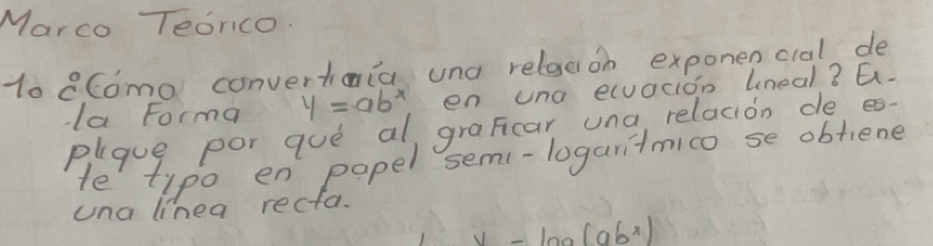 Marco Teórico.
1o ¿Cómo convertiría una relación exponencial de
la Forma y = abˣ en una ecuación lineal? Ex-
plique por qué al graficar una relación de es-
te tipo en papel semi-logarítmico se obtiene
una línea recta.
y = log(abˣ)